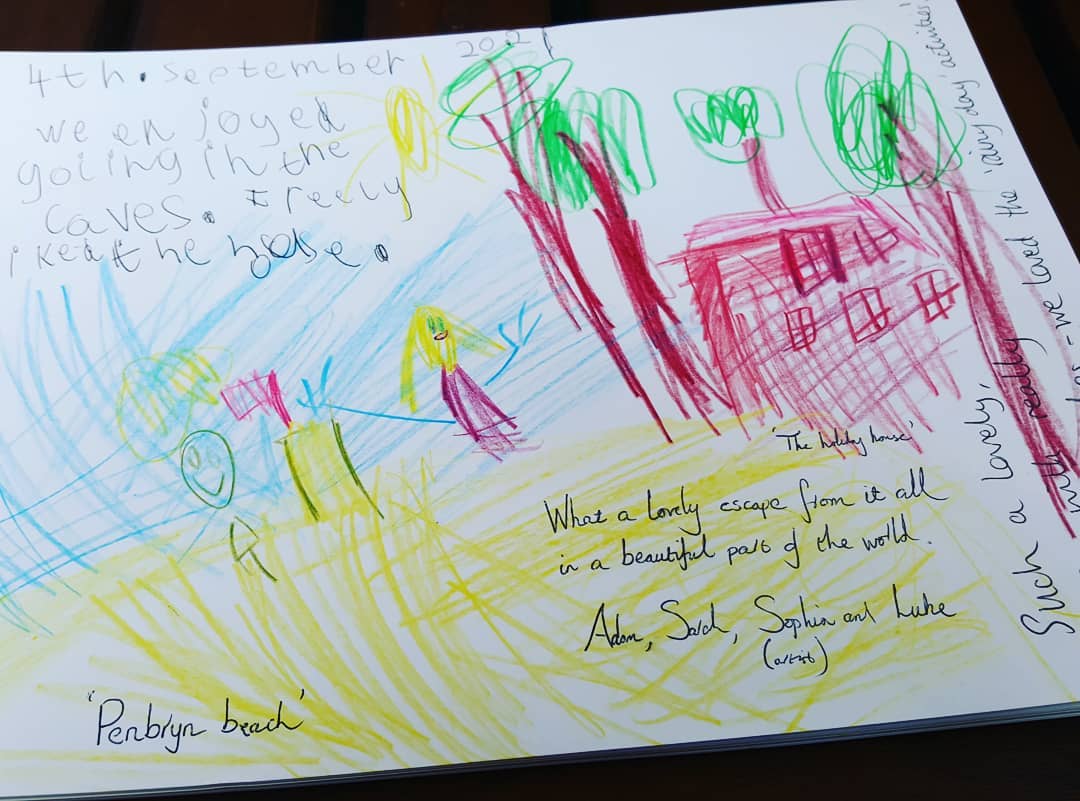 4th. September 2021
we enjoyed
going in the
caves. I reely
liked the house.
'The holiday house'
What a lovely escape from it all
in a beautiful part of the world.
Adam, Sarah, Sophia and Luke
(artist)
'Penbryn beach'
Such a lovely,
with really
- we loved the 'rainy day' activities!